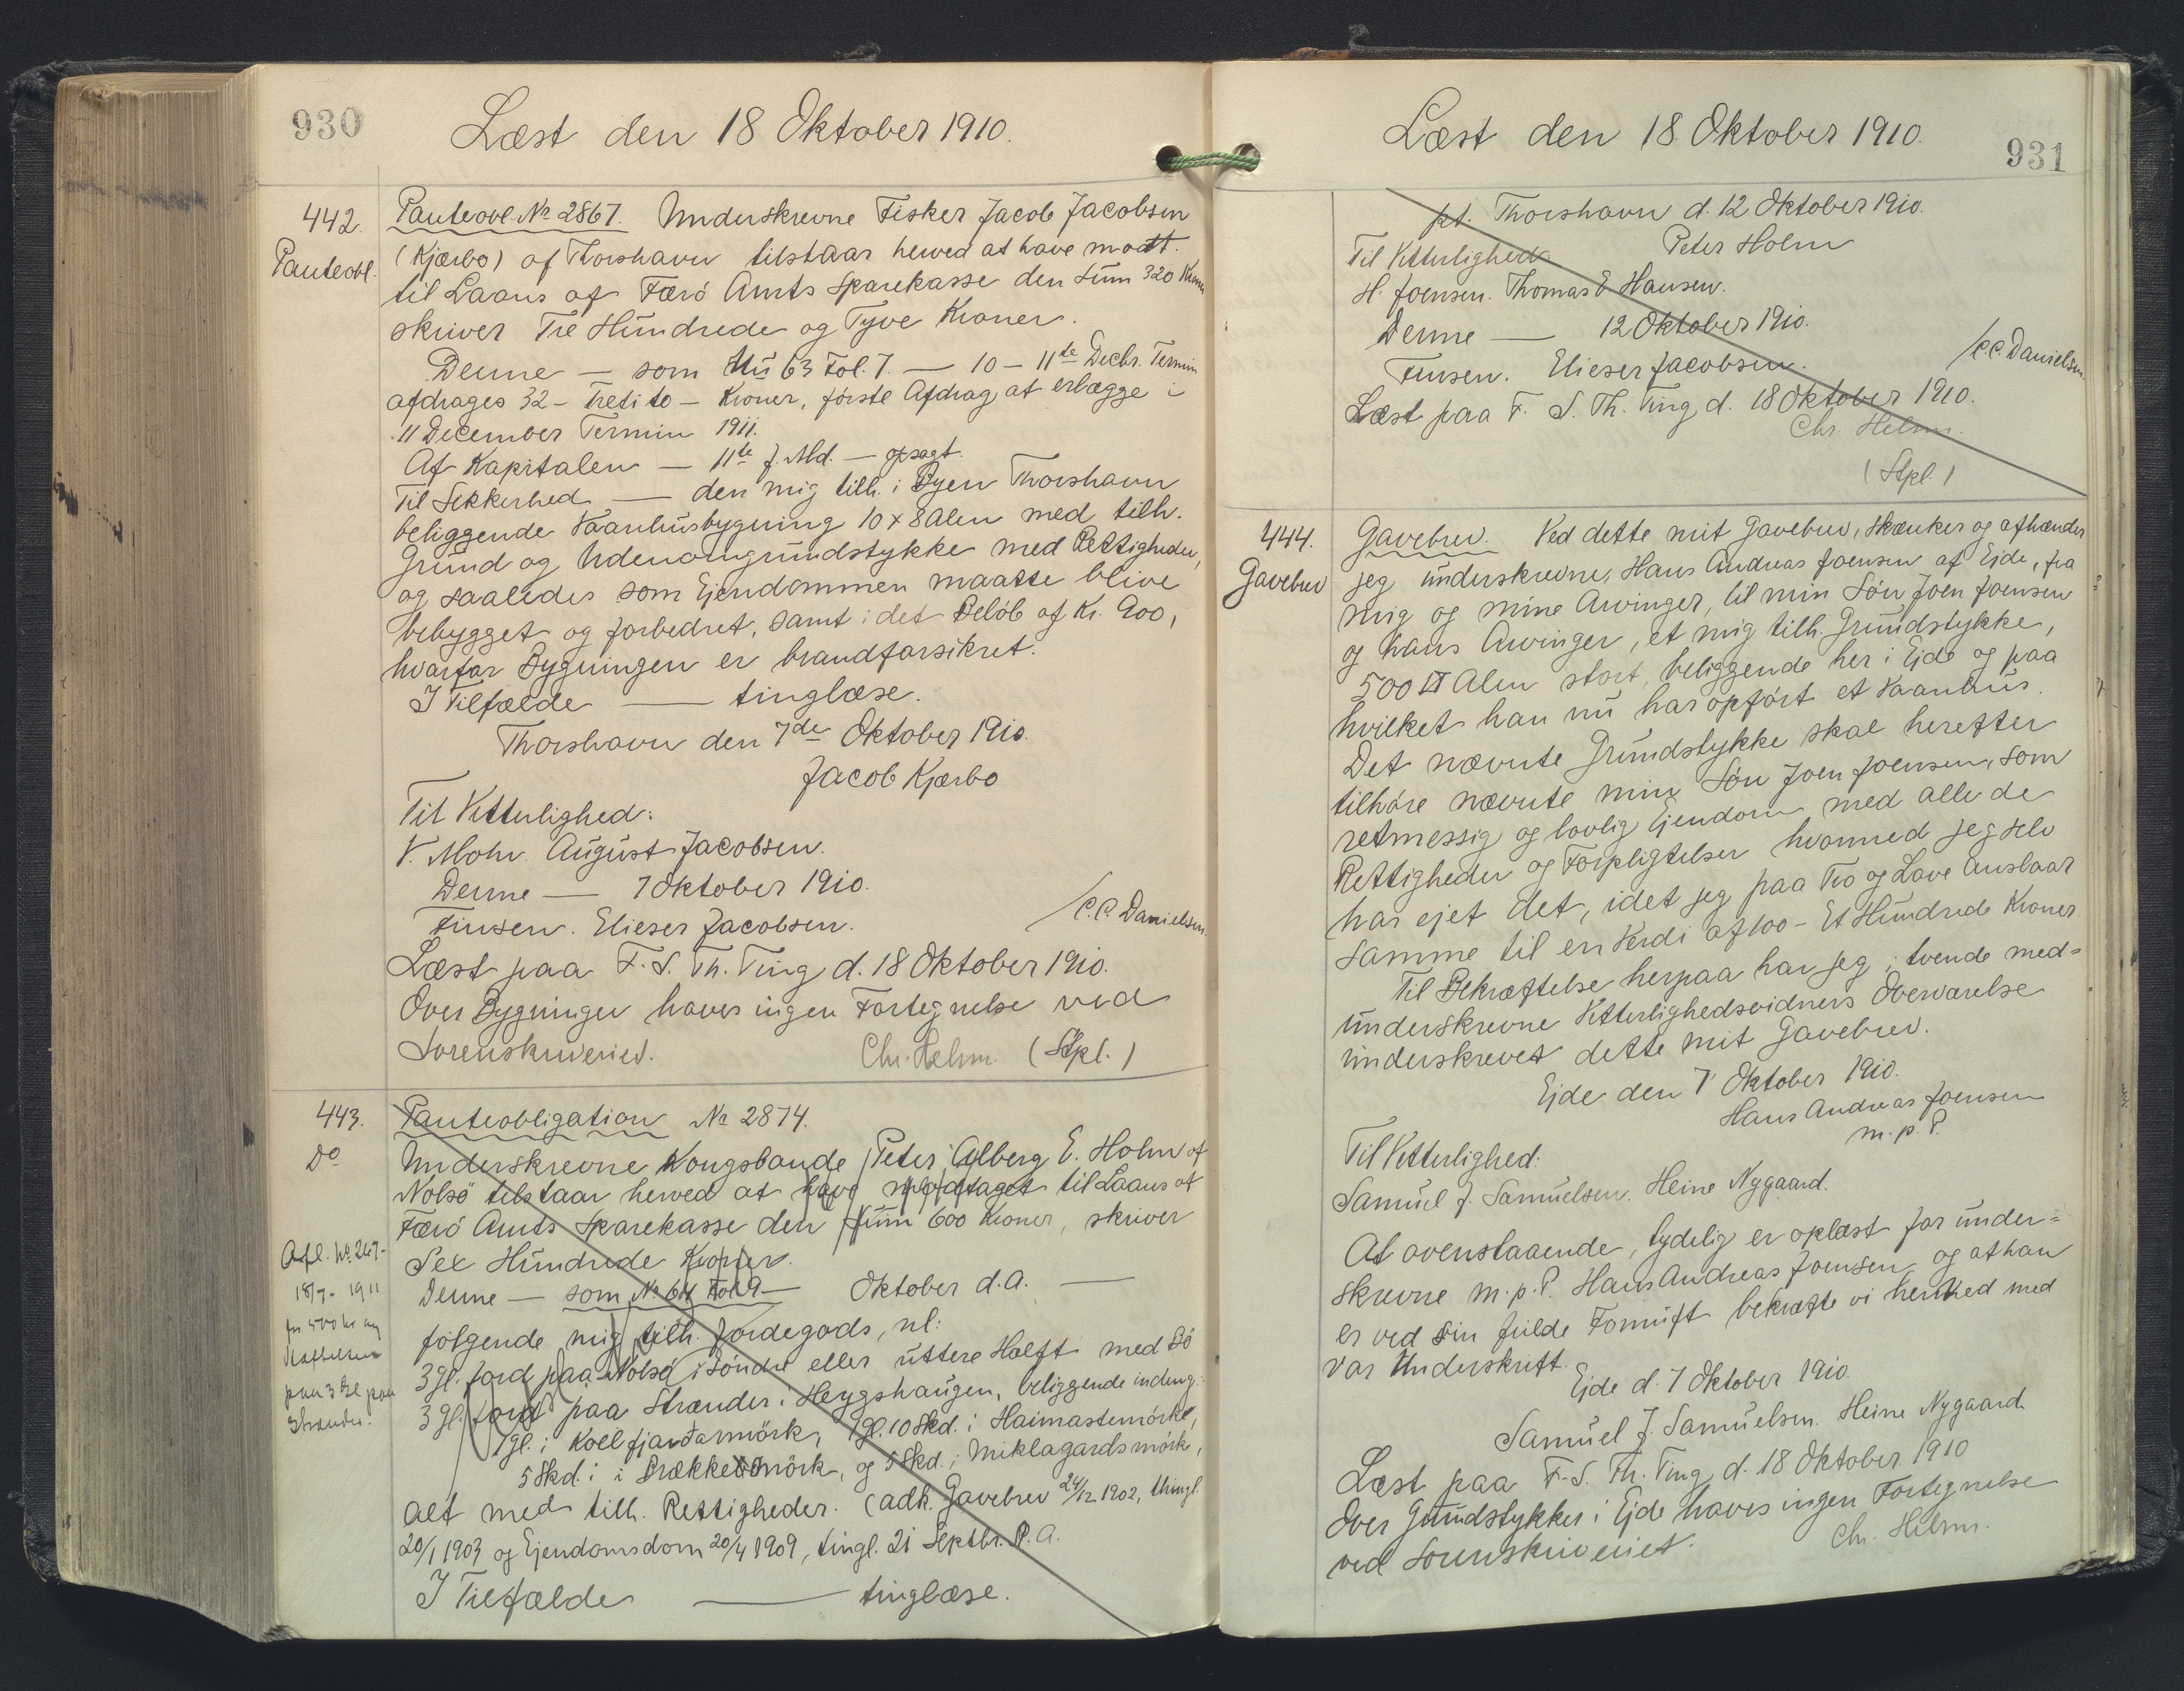 930
Læst den 18 Oktober 1910.
442.
Panteobl.
Panteobl. No 2867. Underskrevne Fisker Jacob Jacobsen
(Kjærbo) af Thorshavn tilstaar herved at have modt.
til Laans af Færö Amts Sparekasse den Sum 320 Kroner
skriver Tre Hundrede og Tyve Kroner.
Denne — som Nu 63 Fol. 7. — 10 – 11te Decbr. Termin
afdrages 32 – Treti to – Kroner, förste Afdrag at erlægge i
11 December Termin 1911.
Af Kapitalen — 11te J. Md. — opsagt.
Til Sikkerhed — den mig tilh. i Byen Thorshavn
beliggende Vaanhusbygning 10 x 8 Alen med tilh.
Grund og Udenomgrundstykke med Rettigheder,
og saaledes som Ejendommen maatte blive
bebygget og forbedret, samt i det Belöb af Kr. 900,
hvorfor Bygningen er brandforsikret.
I Tilfælde — tinglæse.
Thorshavn den 7de Oktober 1910.
Jacob Kjærbo
Til Vitterlighed:
V. Mohr. August Jacobsen.
Denne — 7 Oktober 1910.
Finsen. Elieser Jacobsen.
/C.C. Danielsen.
Læst paa F. S. Th. Ting d. 18 Oktober 1910.
Over Bygninger haves ingen Fortegnelse ved
Sorenskriveriet.
Chr. Helm. (Stpl.)
443.
Do
Panteobligation No 2874.
Underskrevne Kongsbonde Peter Alberg E. Holm af
Nolsö tilstaar herved at have modtaget til Laans af
Færö Amts Sparekasse den Sum 600 Kroner, skriver
Sex Hundrede Kroner.
Denne — som No 64 Fol 9 — Oktober d.A. —
fölgende mig tilh. Jordegods, nl:
3 gl. Jord paa Nolsö i Söndre eller uttere Hælft med Bö
3 gl. Jord paa Strænder i Heygshaugen, beliggende indeng:
1 gl. i Kollfjarðarmörk, 1 gl. 10 Skd. i Haimastemörk,
5 Skd. i i Brækkemörk, og 5 Skd. i Miklagardsmörk,
alt med tilh. Rettigheder. (adk. Gavebrev 24/12 1902, thingl.
20/1 1903 og Ejendomsdom 20/4 1909, tingl. 21 Septbr. s. A.
I Tilfælde — tinglæse.
Afl. No 267-
18/7- 1911
for 500 kr og
paa 3 Gl paa
Strænder.
931
Læst den 18 Oktober 1910.
pt. Thorshavn d. 12 Oktober 1910.
Peter Holm
Til Vitterlighed
H. Joensen. Thomas E Hansen.
Denne — 12 Oktober 1910.
Finsen. Elieser Jacobsen.
/C.C. Danielsen.
Læst paa F. S. Th. Ting d. 18 Oktober 1910.
Chr. Helm.
(Stpl.)
444.
Gavebrev
Gavebrev. Ved dette mit Gavebrev, skænker og afhænder
jeg underskrevne, Hans Andreas Joensen af Ejde, fra
mig og mine Arvinger, til min Sön Joen Joensen
og hans Arvinger, et mig tilh. Grundstykke,
500 □ Alen stort, beliggende her i Ejde og paa
hvilket han nu har opfört et Vaanhus.
Det nævnte Grundstykke skal herefter
tilhöre nævnte min Sön Joen Joensen, som
retmessig og lovlig Ejendom med alle de
Rettigheder og Forpligtelser hvormed jeg selv
har ejet det, idet jeg paa Tro og Love anslaar
samme til en Verdi af 100 – Et Hundrede Kroner.
Til Bekræftelse herpaa har jeg i tvende med=
underskrevne Vitterlighedsvidners Overværelse
underskrevet dette mit Gavebrev.
Ejde den 7 Oktober 1910.
Hans Andreas Joensen
m. p. P.
Til Vitterlighed:
Samuel J. Samuelsen. Heine Nygaard.
At ovenstaaende, tydelig er oplæst for under=
skrevne m. p. P. Hans Andreas Joensen og at han
er ved sin fulde Fornuft bekræfte vi herved med
vor Underskrift.
Ejde d. 7 Oktober 1910.
Samuel J. Samuelsen. Heine Nygaard.
Læst paa F. S. Th. Ting d. 18 Oktober 1910
Over Grundstykker i Ejde haves ingen Fortegnelse
ved Sorenskriveriet.
Chr. Helm.